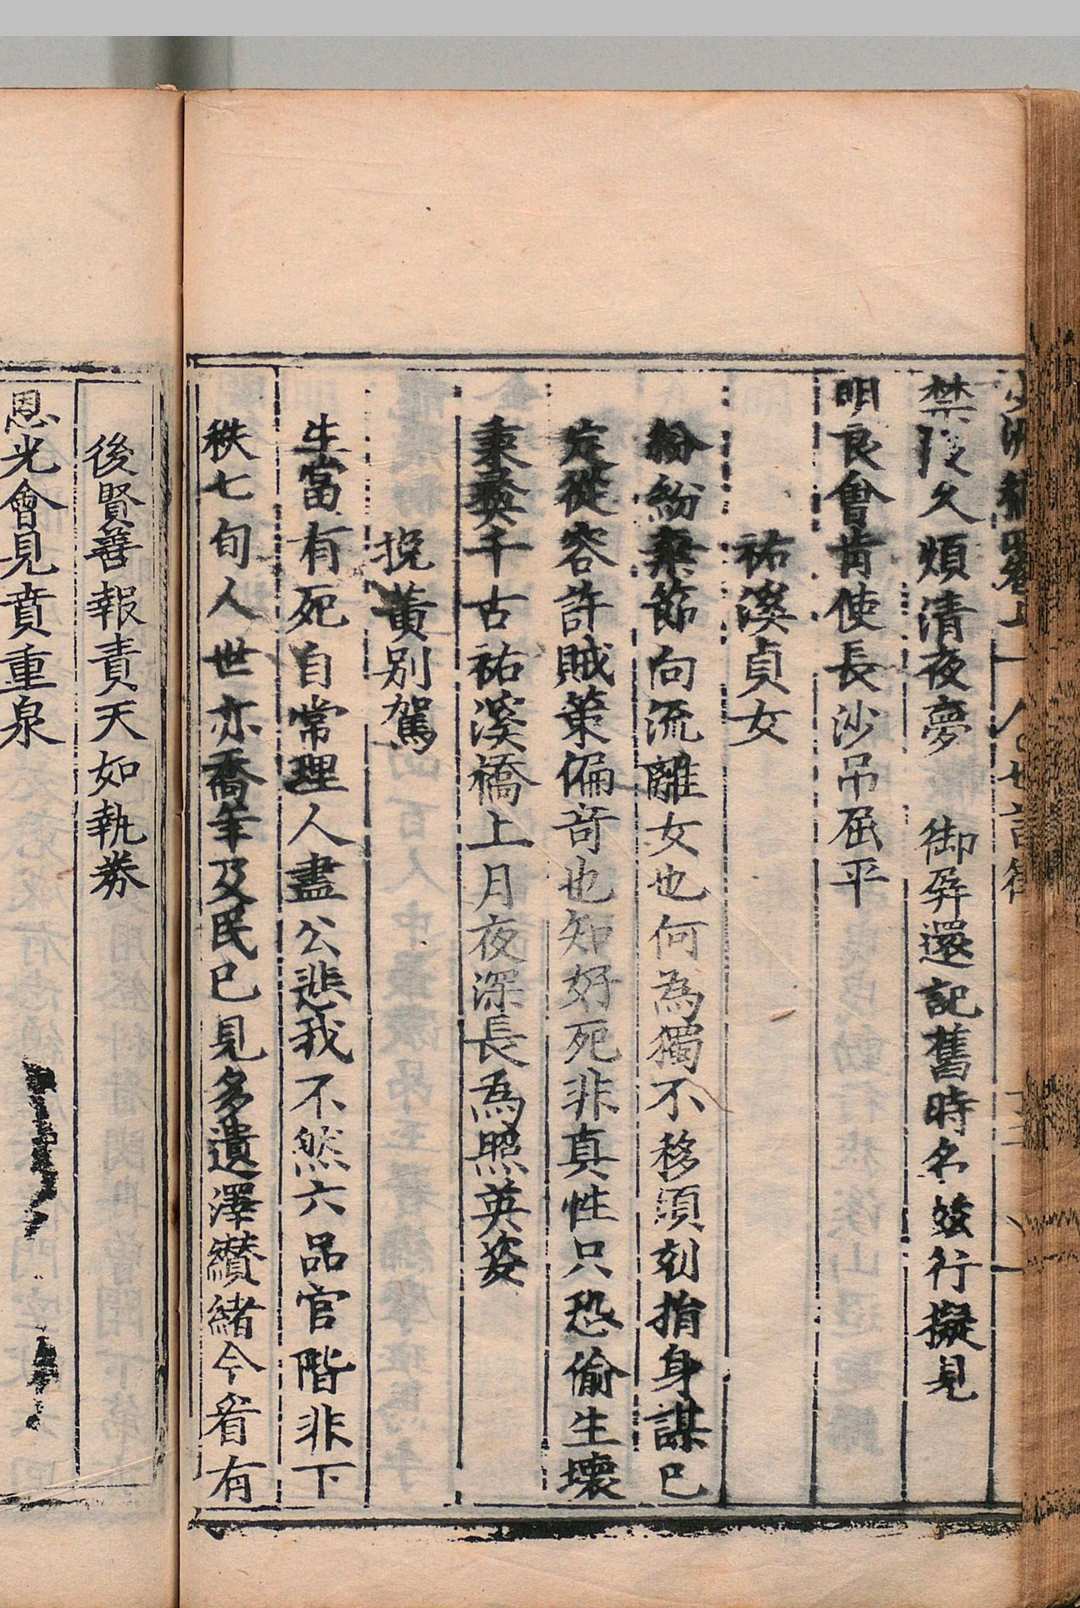 禁 久煩清夜夢 御屏還記舊時名姣行擬見
明良會肯使長沙吊屈平
祐溪貞女
紛紛棄節向流離女也何為獨不移頃刻捐身謀已
定從容許賊策偏奇也知好死非真性只恐偷生壞
秉彝千古祐溪橋上月夜深長為照英姿
挽黃別駕
生當有死自常理人盡公悲我不然六品官階非下
秩七旬人世亦喬年及民已見多遺澤纘緒今看有
後賢善報責天如執券
恩光會見賁重泉